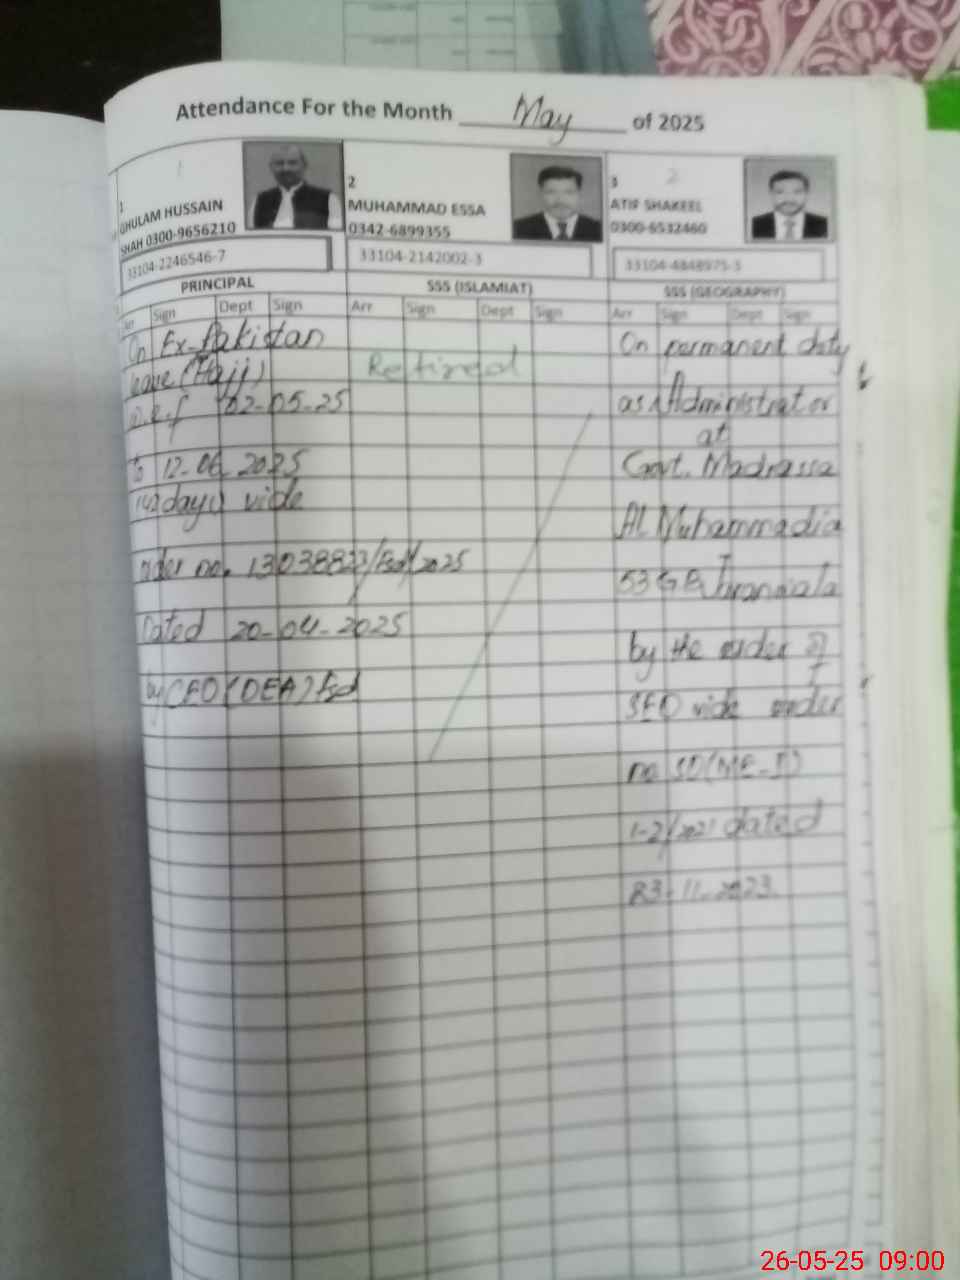 Attendance For the Month May of 2025
1
GHULAM HUSSAIN
SHAH 0300-9656210
33104-2246546-7
PRINCIPAL
Sign Dept Sign
On Ex-Pakistan
leave (Hajj)
w.e.f 02-05-25
to 12-06-2025
days) vide
order no. /Fsd/2025
Dated 20-04-2025
by CEO (DEA) Fsd
2
MUHAMMAD ESSA
0342-6899355
33104-2142002-3
SSS (ISLAMIAT)
Arr Sign Dept Sign
Retired
3 2
ATIF SHAKEEL
0300-6532460
33104-4848975-3
SSS (GEOGRAPHY)
Arr Sign Dept Sign
On permanent duty
as Administrator
at
Govt. Madrassa
Al Muhammadia
53 GB Jaranwala
by the order of
SED vide order
no SO(ME-I)
1-2/2021 dated
11-2023.
26-05-25 09:00